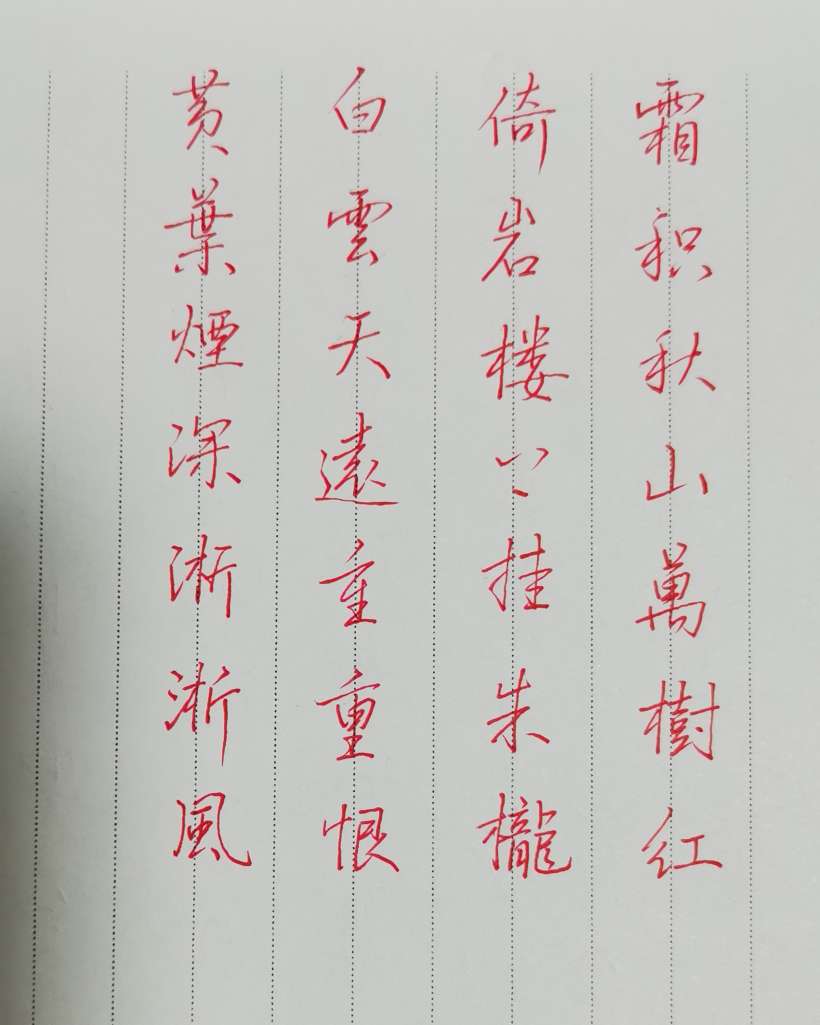 霜积秋山萬樹紅
倚岩楼上挂朱櫳
白雲天遠重重恨
黄葉煙深淅淅風